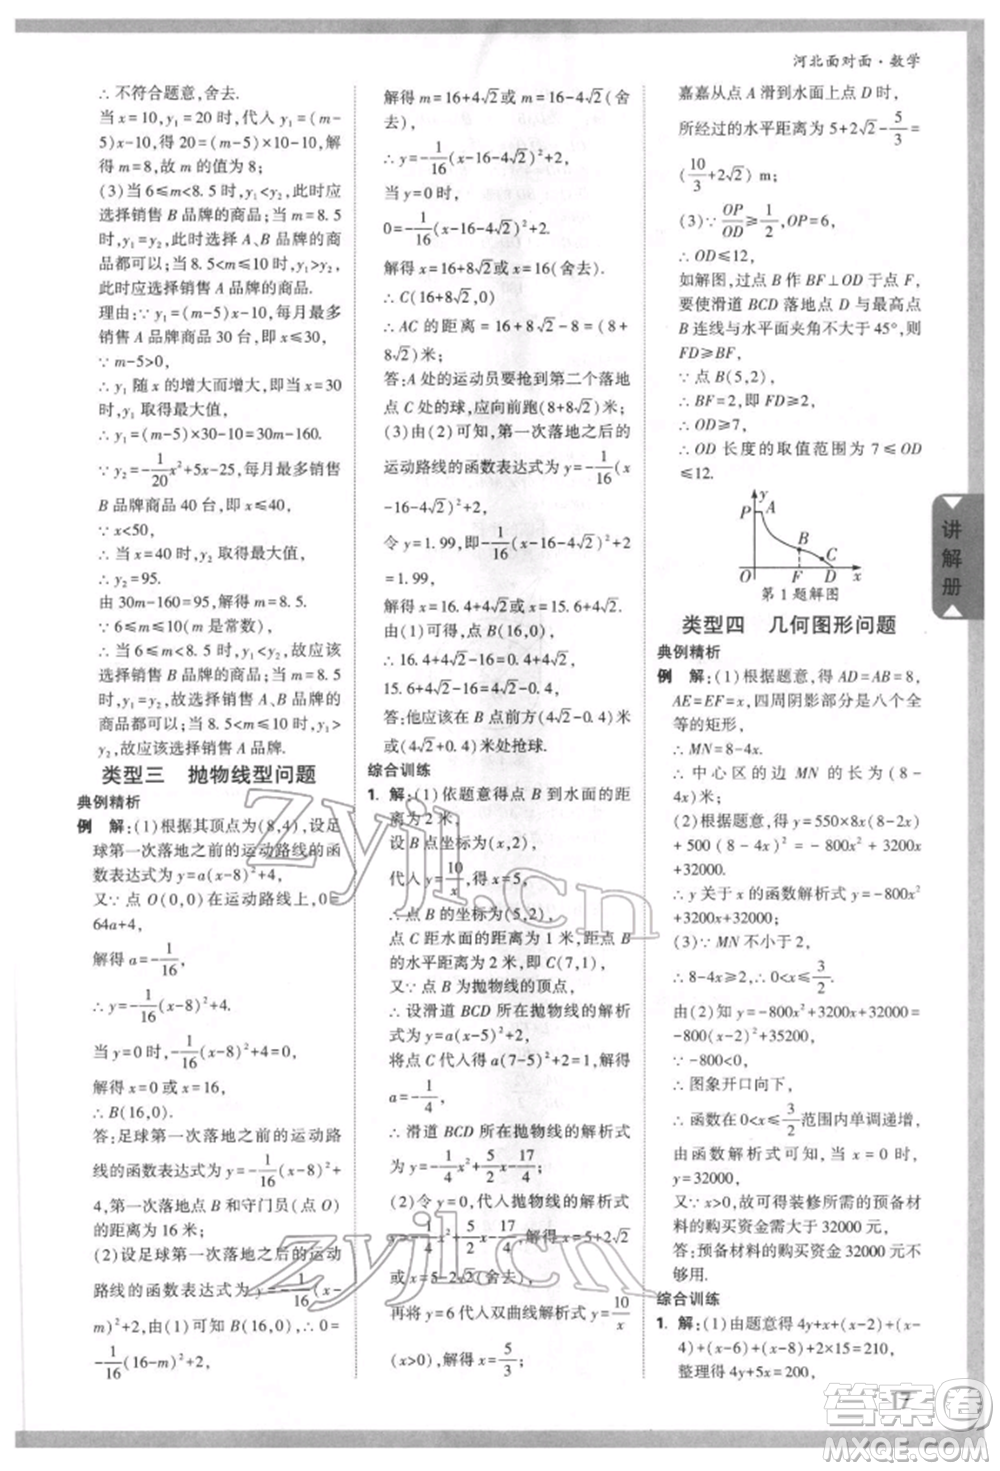 河北面对面·数学
∴不符合题意,舍去.
当x=10,y₁=20时,代入y₁=(m-
5)x-10,得20=(m-5)×10-10,
解得m=8,故m的值为8;
(3)当6≤m<8.5时,y₁<y₂,此时应
选择销售B品牌的商品;当m=8.5
时,y₁=y₂,此时选择A、B品牌的商
品都可以;当8.5<m≤11时,y₁>y₂,
此时应选择销售A品牌的商品.
理由:∵y₁=(m-5)x-10,当销售
A品牌商品30台,即x≤30,
∵m-5>0,
∴y₁随x的增大而增大,即当x=30
时,y₁取得最大值,
∴y₁=(m-5)×30-10=30m-160.
∵y₂=-1/20x²+5x-25,当销售
B品牌商品40台,即x≤40,
∵x<50,
∴当x=40时,y₂取得最大值,
∴y₂=95.
由30m-160=95,解得m=8.5.
∵6≤m≤11(m是常数),
∴当6≤m<8.5时,y₁<y₂,故应该
选择销售B品牌;当m=8.5时,
y₁=y₂,此时选择销售A、B品牌的
商品都可以;当8.5<m≤11时,y₁>
y₂,故应该选择销售A品牌.
类型三 抛物线型问题
典例精析
例 解:(1)根据其顶点为(8,4),设足
球第一次落地之前的运动路线的函
数表达式为y=a(x-8)²+4,
又∵点O(0,0)在运动路线上,0=
64a+4,
解得a=-1/16,
∴y=-1/16(x-8)²+4.
当y=0时,-1/16(x-8)²+4=0,
解得x=0或x=16,
∴B(16,0).
答:足球第一次落地之前的运动路
线的函数表达式为y=-1/16(x-8)²+
4,第一次落地点B和守门员(点O)
的距离为16米;
(2)设足球第一次落地之后的运动
路线的函数表达式为y=-1/16(x-
m)²+2,由题意得
-1/16(16-m)²+2=0,
解得m=16+4√2或m=16-4√2(舍
去),
∴y=-1/16(x-16-4√2)²+2,
当y=0时,
0=-1/16(x-16-4√2)²+2.
解得x=16+8√2或x=16(舍去).
∴C(16+8√2,0)
∴AC的距离=16+8√2-8=(8+
8√2)米;
答:A处的运动员要抢到第二个落地
点C处的球,应向前跑(8+8√2)米;
(3)由(2)可知,第一次落地之后的
运动路线的函数表达式为y=-1/16(x
-16-4√2)²+2,
令y=1.99,即-1/16(x-16-4√2)²+2=
1.99,
解得x=16.4+4√2或x=15.6+4√2,
∴16.4-16=0.4(米),
15.6-16=-0.4,
答:他应该在B点前方(4√2-0.4)米
到(4√2+0.4)米处抢球.
综合训练
1. 解:(1)依题意得点B到水面的距
离为2米,
设B点坐标为(x,2),
代入y=10/x,得x=5,
∴点B的坐标为(5,2),
点C距水面的距离为1米,
点C距y轴的距离为7,即C(7,1),
又∵点B为抛物线的顶点,
∴设滑道BCD所在抛物线的解析
式为y=a(x-5)²+2,
将点C代入得a(7-5)²+2=1,解得
a=-1/4,
∴滑道BCD所在抛物线的解析式
为y=-1/4x²+5/2x-17/4;
(2)令y=0,代入抛物线的解析式
y=-1/4x²+5/2x-17/4,得x=5+2√2
或x=5-2√2(舍去),
再将y=6代入双曲线解析式y=10/x
(x>0),解得x=5/3,
嘉嘉从点A滑到水面上点D时,
所经过的水平距离为5+2√2-5/3=
(10/3+2√2)m;
(3)∵OP/OD≥1/2,OP=6,
∴OD≤12,
如解图,过点B作BF⊥OD于点F,
要使滑道BCD落地点D与最高点
B连线与水平面夹角不大于45°,则
FD≥BF,
∵点B(5,2),
∴BF=2,即FD≥2,
∴OD≥7,
∴OD长度的取值范围为7≤OD
≤12.
y
P A
B
C
O F D x
第1题解图
类型四 几何图形问题
典例精析
例 解:(1)根据题意,得AD=AB=8,
AE=EF=x,四周阴影部分是八个全
等的矩形,
∴MN=8-4x.
∴中心区的边MN的长为(8-
4x)米;
(2)根据题意,得y=550×8x(8-2x)
+500(8-4x)²=-800x²+3200x+
32000.
∴y关于x的函数解析式y=-800x²
+3200x+32000;
(3)∵MN不小于2,
∴8-4x≥2,∴0<x≤3/2,
由(2)知y=-800x²+3200x+32000=
-800(x-2)²+35200,
∵-800<0,
∴图象开口向下,
∴函数在0<x≤3/2范围内单调递增,
由函数解析式可知,当x=0时,
y=32000,
又∵x>0,故可得装修所需的预备材
料的购买资金需大于32000元,
答:预备材料的购买资金32000元不
够用.
综合训练
1. 解:(1)由题意得4y+x+(x-2)+(x-
4)+(x-6)+(x-8)+2×15=210,
整理得4y+5x=200,
讲解册
17
zyjl.cn
zyjl.cn
答案圈
MXQE.COM